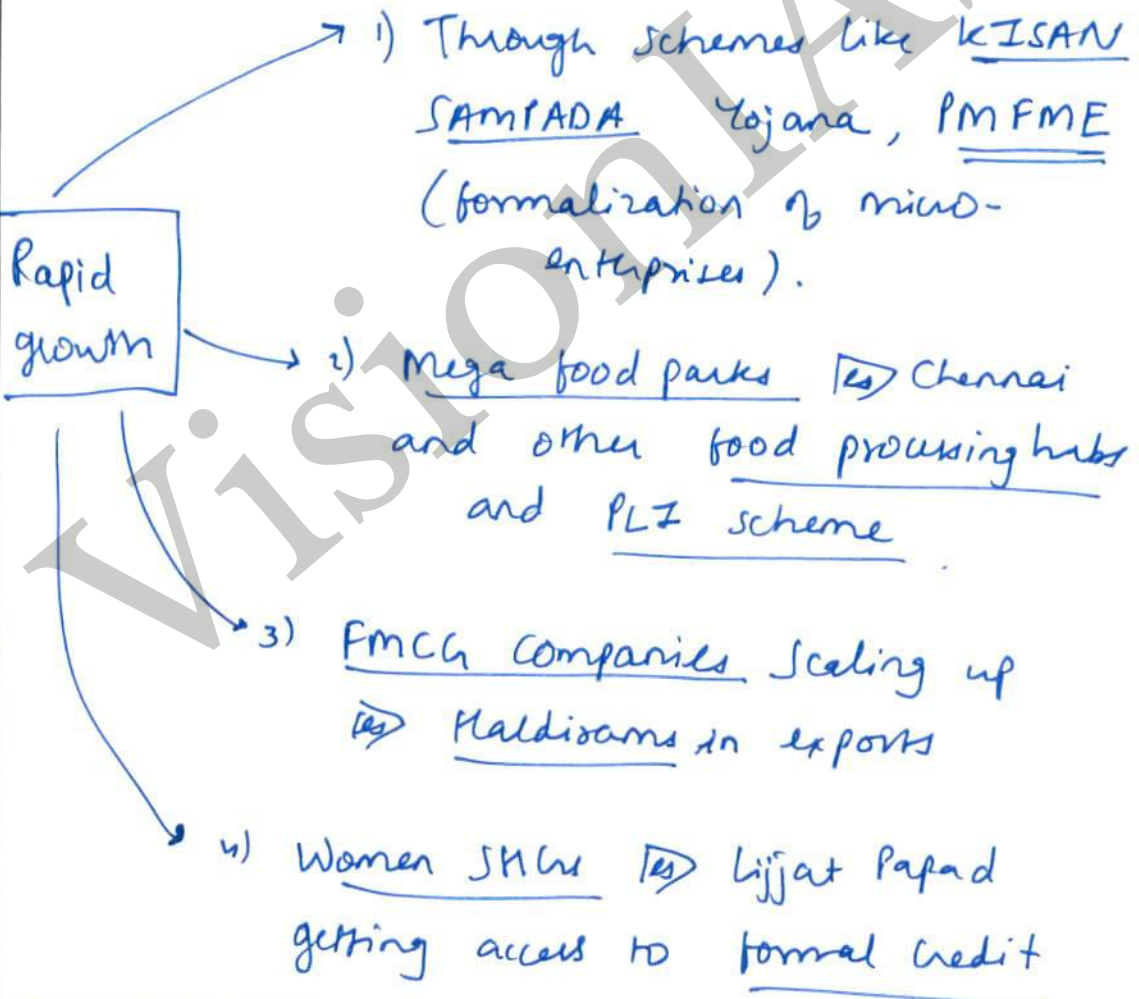 1) Through schemes like KISAN
SAMPADA Yojana, PMFME
(formalization of micro-
enterprises).
Rapid
growth
2) Mega food parks eg Chennai
and other food processing hubs
and PLI scheme.
3) FMCG Companies Scaling up
eg Haldirams in exports
4) Women SHGs eg Lijjat Papad
getting access to formal credit
VisionIA